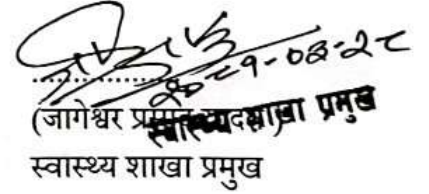 २०८१-०३-२८
(जागेश्वर प्रसाद यादव)
स्वास्थ्य शाखा प्रमुख
स्वास्थ्य शाखा प्रमुख